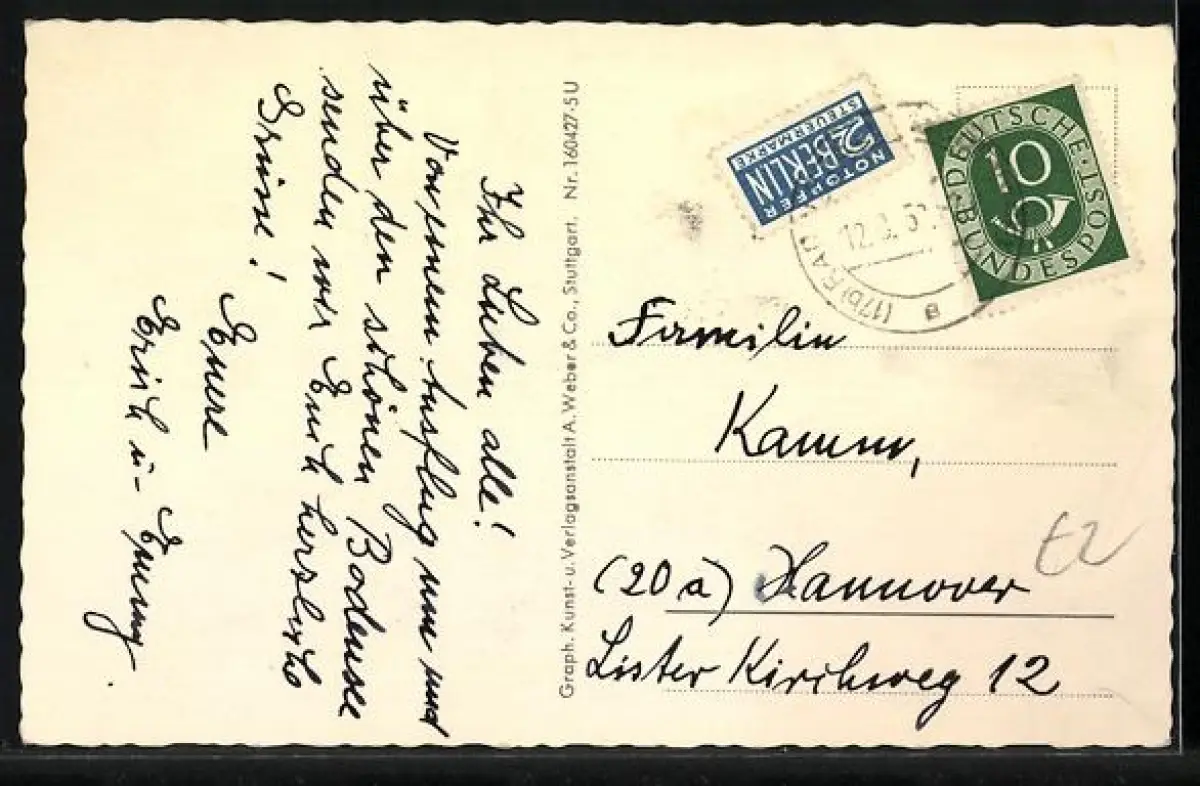 Ihr Lieben alle!
Von einem Ausflug um und
über den schönen Bodensee
senden wir Euch herzliche
Grüsse!
Euere
Erich u. Emmy.
Graph. Kunst- u. Verlagsanstalt A. Weber & Co., Stuttgart. Nr. 160427·5U
NOTOPFER
2 BERLIN
STEUERMARKE
DEUTSCHE · BUNDESPOST
10
(17b)
12. 5
a
Familie
Kamm,
(20a) Hannover
Lister Kirchweg 12